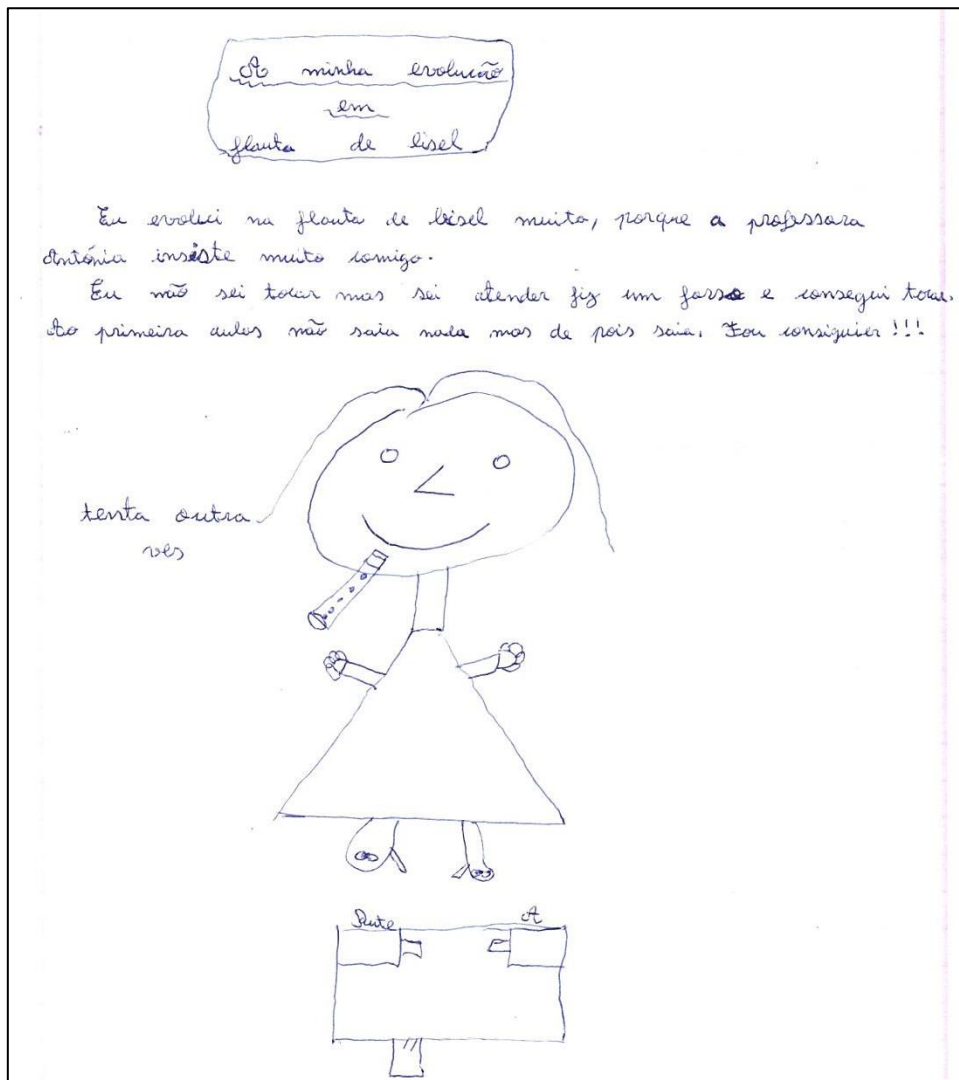 A minha evolução
em
flauta de bisel
Eu evoluci na flauta de bisel muito, porque a professora
Antónia insiste muito comigo.
Eu não sei tocar mas sei atender fiz um forso e consegui tocar.
Ao primeira aulas não saia nada mas de pois saia. Fou consiguier!!!
tenta outra
vês
Rute A